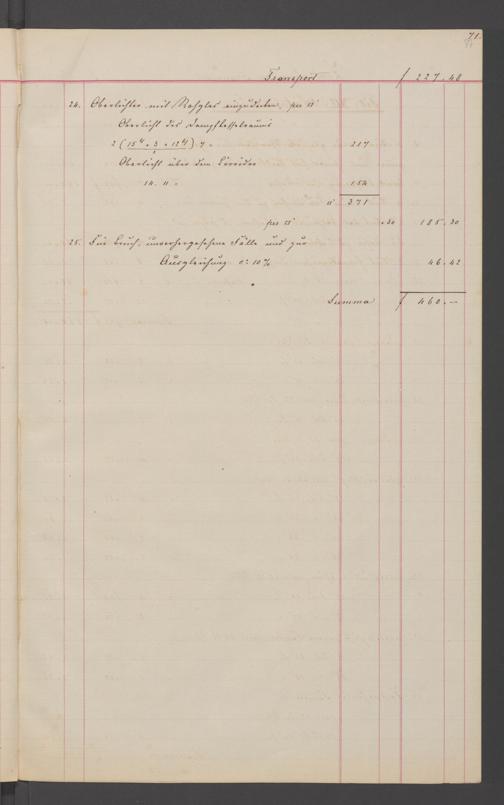 71.
Transport f 227.48
24. Oberlichter mit Rohglas einzudecken, per □'
Oberlicht des Dampfkesselraums
2 ( ) 7 = 217
Oberlicht über dem Corridor
14. 11 = 154
□' 371
per □' .50 185.50
25. Für Bruch, unvorhergesehene Fälle und zur
Ausgleichung c: 10% 46.42
Summa f 460.—